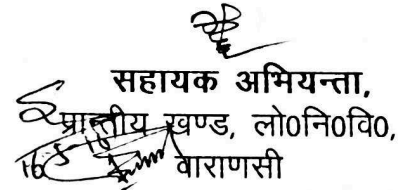 सहायक अभियन्ता,
प्रान्तीय खण्ड, लो0नि0वि0,
वाराणसी